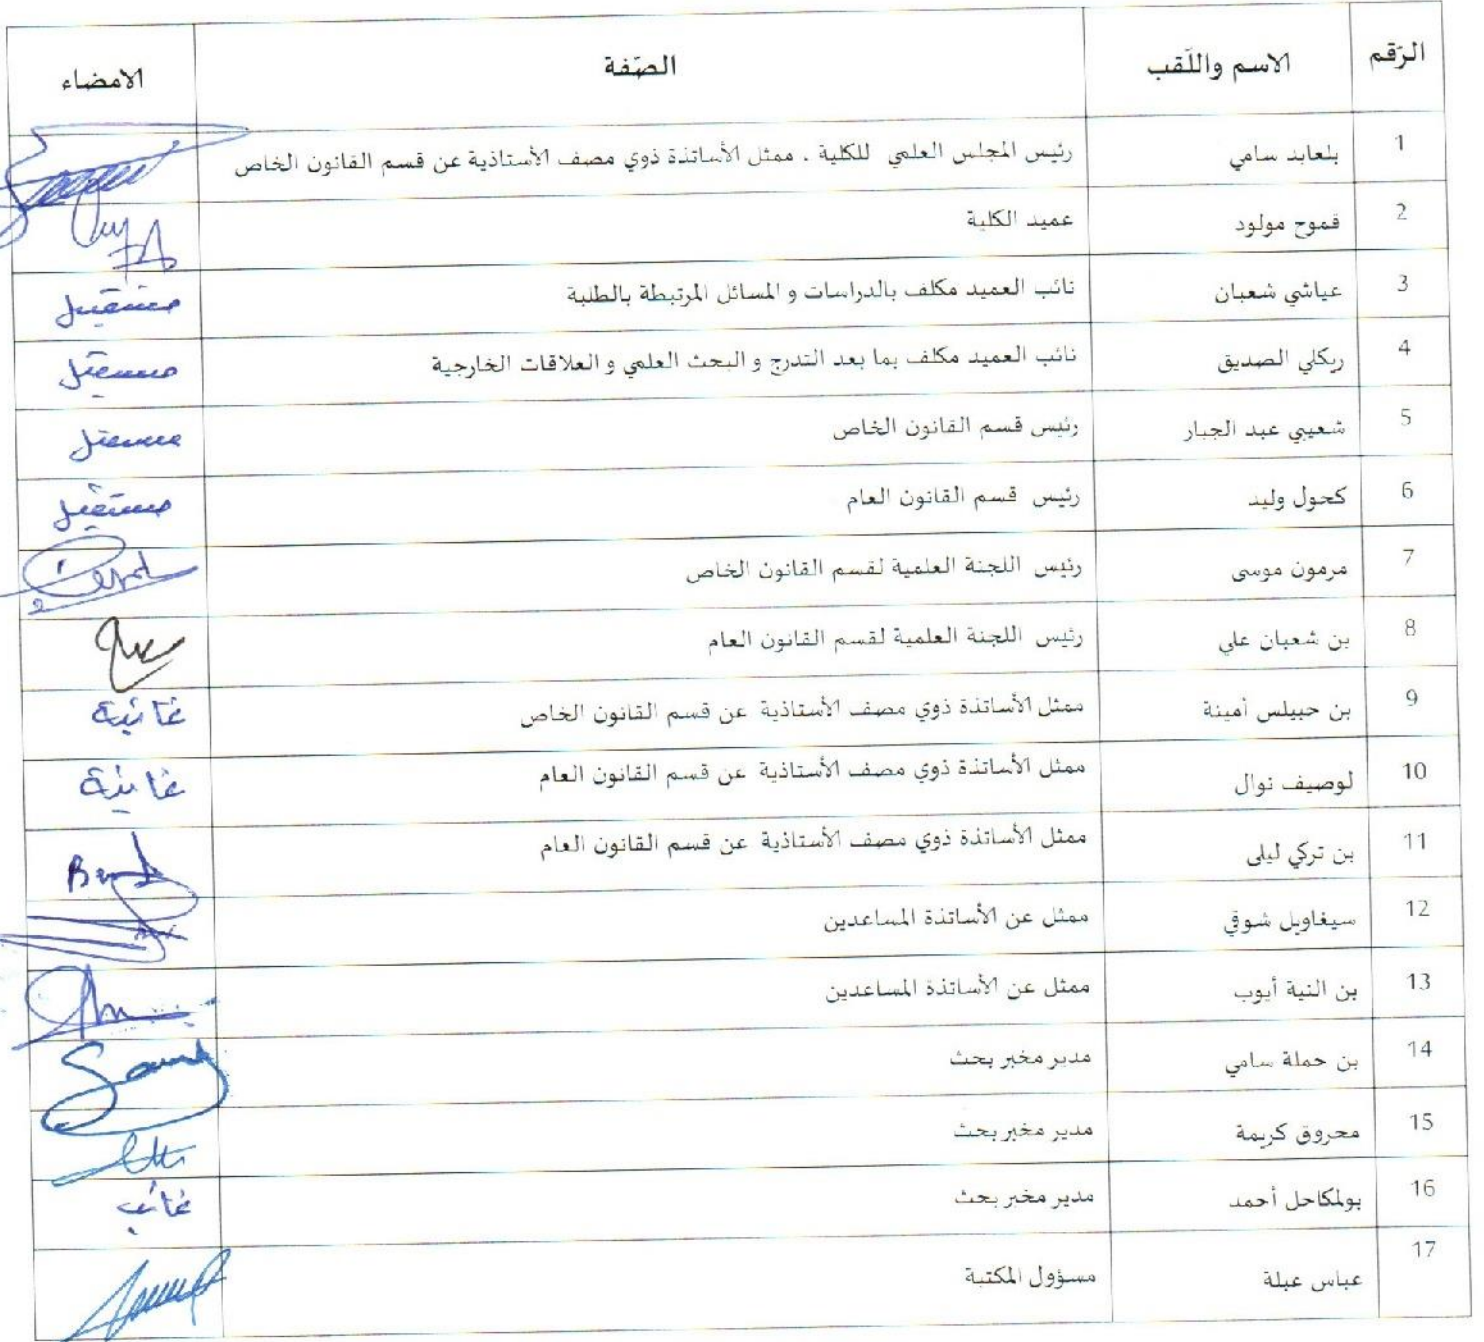 الرّقم الاسم واللّقب الصّفة الامضاء
1 بلعابد سامي رئيس المجلس العلمي للكلية . ممثل الأساتذة ذوي مصف الأستاذية عن قسم القانون الخاص
2 قموح مولود عميد الكلية
3 عياشي شعبان نائب العميد مكلف بالدراسات و المسائل المرتبطة بالطلبة مستقيل
4 ريكلي الصديق نائب العميد مكلف بما بعد التدرج و البحث العلمي و العلاقات الخارجية مستقيل
5 شعيبي عبد الجبار رئيس قسم القانون الخاص مستقيل
6 كحول وليد رئيس قسم القانون العام مستقيل
7 مرمون موسى رئيس اللجنة العلمية لقسم القانون الخاص
8 بن شعبان علي رئيس اللجنة العلمية لقسم القانون العام
9 بن حبيلس أمينة ممثل الأساتذة ذوي مصف الأستاذية عن قسم القانون الخاص غائبة
10 لوصيف نوال ممثل الأساتذة ذوي مصف الأستاذية عن قسم القانون العام غائبة
11 بن تركي ليلى ممثل الأساتذة ذوي مصف الأستاذية عن قسم القانون العام
12 سيغاويل شوقي ممثل عن الأساتذة المساعدين
13 بن النية أيوب ممثل عن الأساتذة المساعدين
14 بن حملة سامي مدير مخبر بحث
15 محروق كريمة مدير مخبر بحث
16 بولمكاحل أحمد مدير مخبر بحث غائب
17 عباس عبلة مسؤول المكتبة